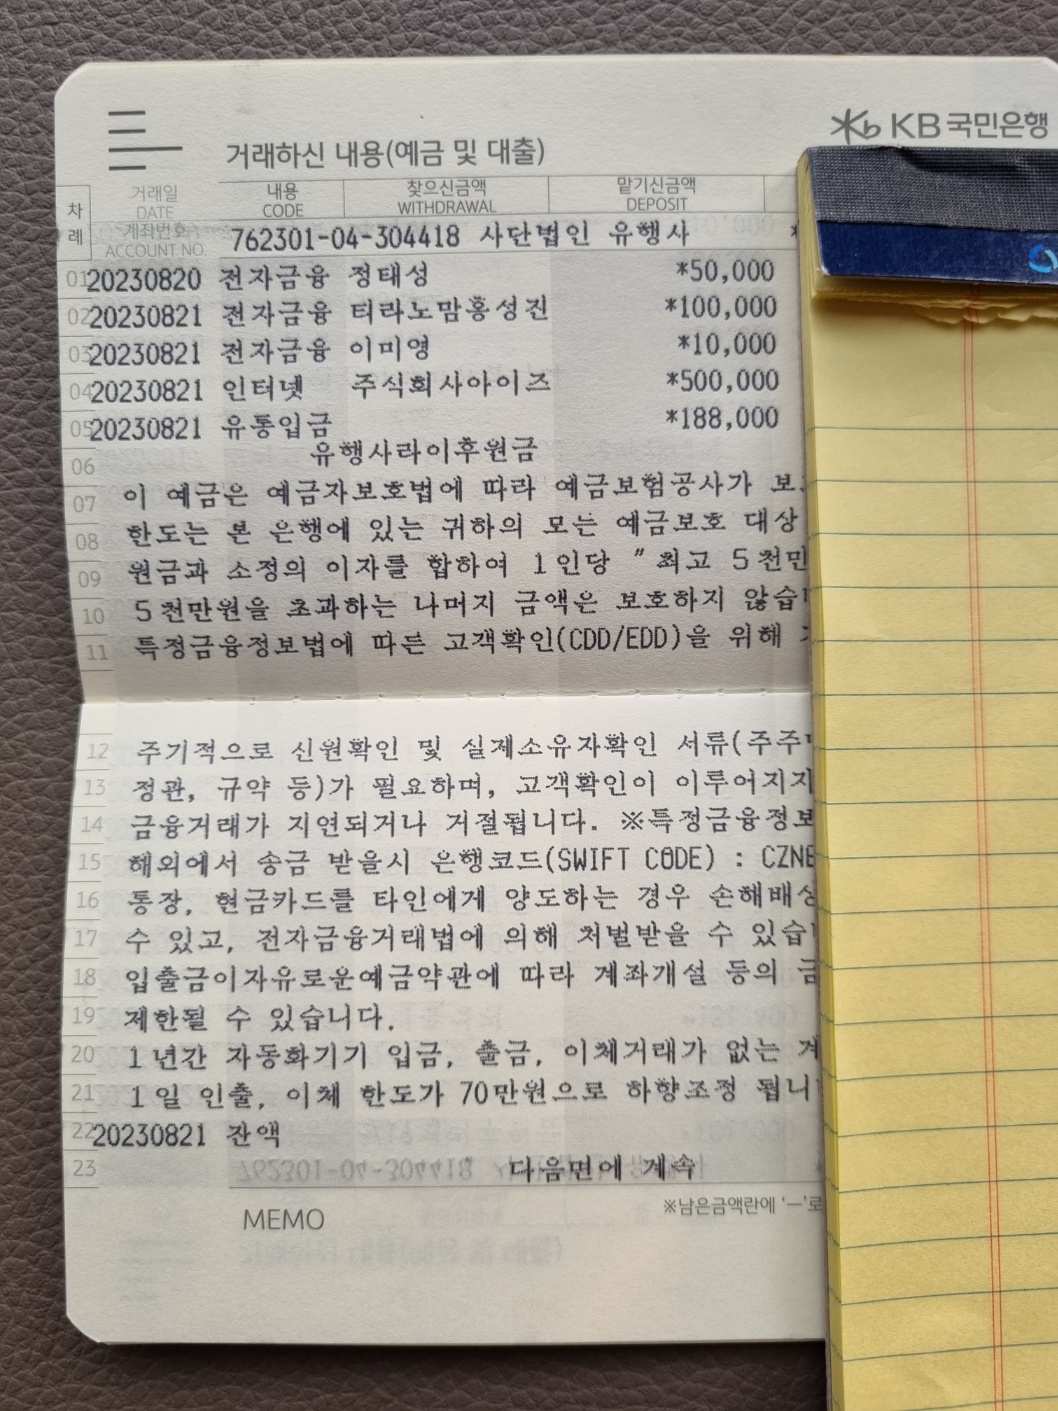 KB 국민은행
거래하신 내용(예금 및 대출)
차례 거래일 DATE 내용 CODE 찾으신금액 WITHDRAWAL 맡기신금액 DEPOSIT
계좌번호 ACCOUNT NO. 762301-04-304418 사단법인 유행사
01 20230820 전자금융 정태성 *50,000
02 20230821 전자금융 티라노맘홍성진 *100,000
03 20230821 전자금융 이미영 *10,000
04 20230821 인터넷 주식회사아이즈 *500,000
05 20230821 유통입금 *188,000
06 유행사라이후원금
07 이 예금은 예금자보호법에 따라 예금보험공사가
08 한도는 본 은행에 있는 귀하의 모든 예금보호 대상
09 원금과 소정의 이자를 합하여 1인당 "최고 5천만
10 5천만원을 초과하는 나머지 금액은 보호하지
11 특정금융정보법에 따른 고객확인(CDD/EDD)을 위해
12 주기적으로 신원확인 및 실제소유자확인 서류(주주
13 정관, 규약 등)가 필요하며, 고객확인이
14 금융거래가 지연되거나 거절됩니다. ※특정금융정보
15 해외에서 송금 받을시 은행코드(SWIFT CODE) : CZN
16 통장, 현금카드를 타인에게 양도하는 경우 손해배상
17 수 있고, 전자금융거래법에 의해 처벌받을 수
18 입출금이자유로운예금약관에 따라 계좌개설 등의
19 제한될 수 있습니다.
20 1년간 자동화기기 입금, 출금, 이체거래가 없는
21 1일 인출, 이체 한도가 70만원으로 하향조정
22 20230821 잔액
23 다음면에 계속
MEMO
※남은금액란에 '-'로